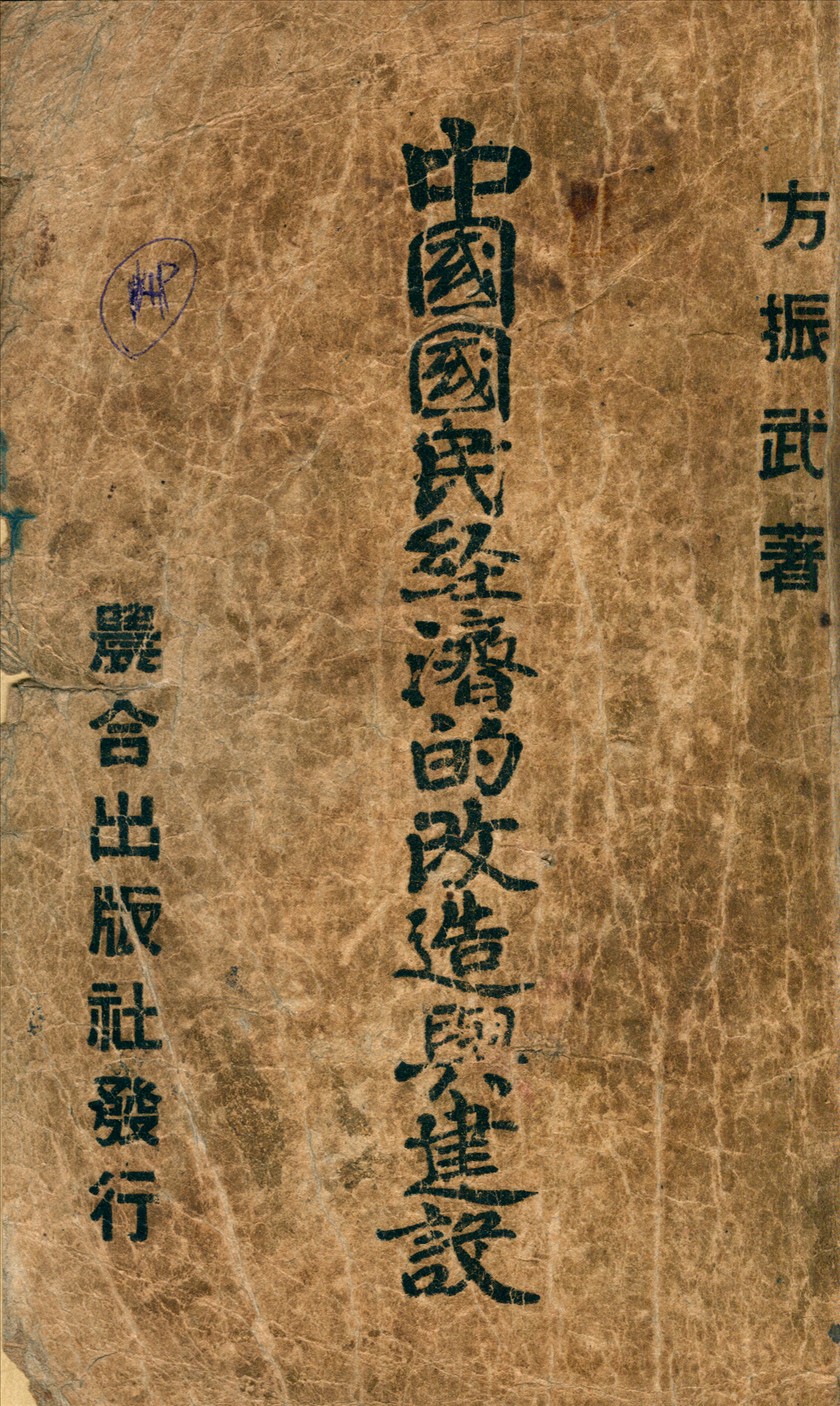 方振武著
中國國民经濟的改造與建設
農合出版社發行